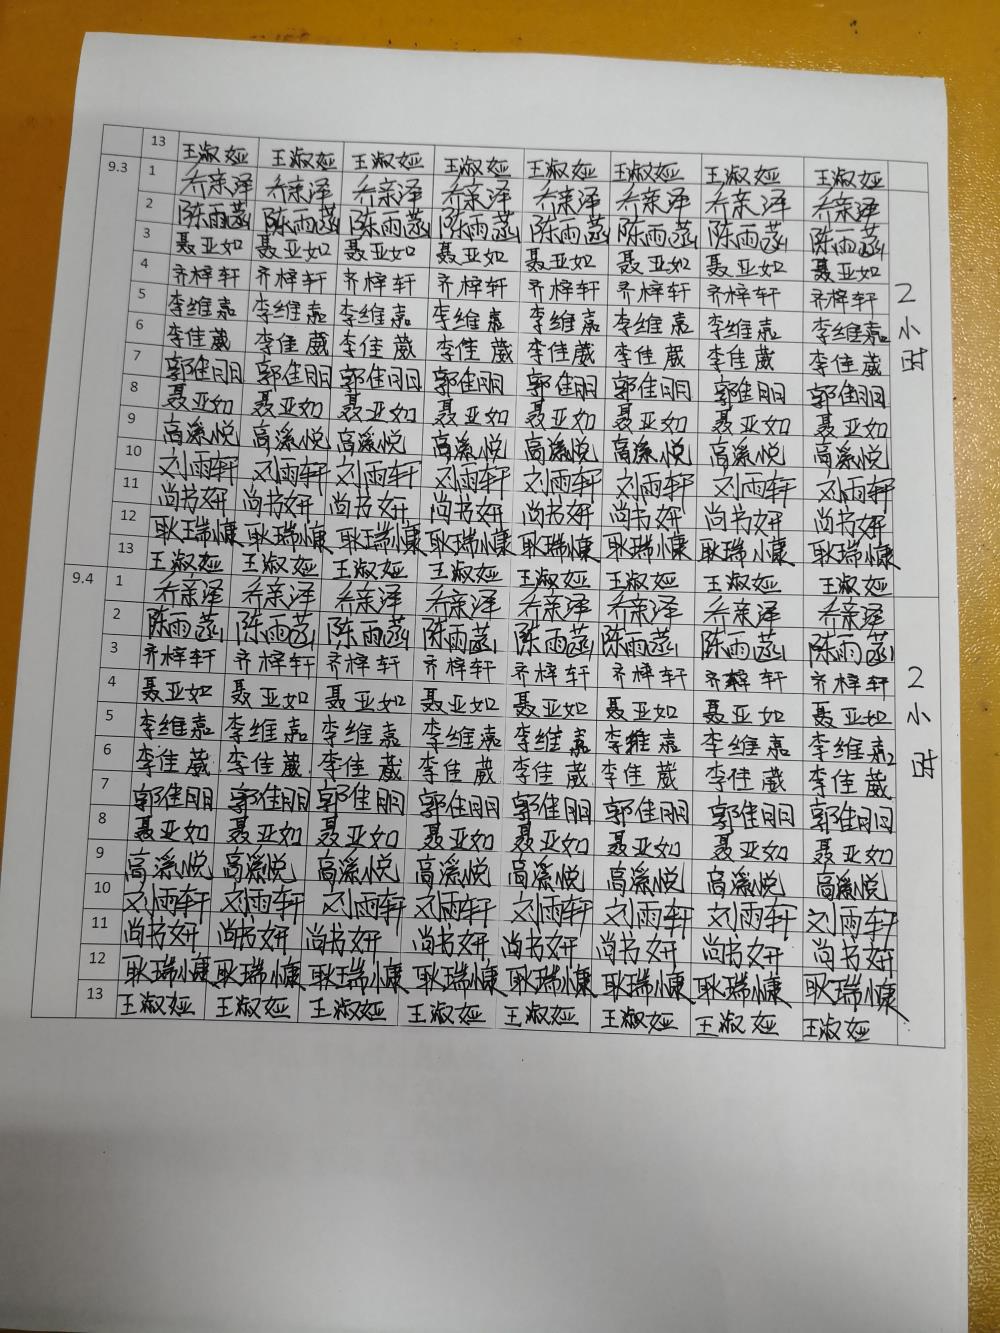 13 王淑娅 王淑娅 王淑娅 王淑娅 王淑娅 王淑娅 王淑娅 王淑娅
9.3 1 乔亲泽 乔亲泽 乔亲泽 乔亲泽 乔亲泽 乔亲泽 乔亲泽 乔亲泽
2 陈雨菡 陈雨菡 陈雨菡 陈雨菡 陈雨菡 陈雨菡 陈雨菡 陈雨菡
3 聂亚如 聂亚如 聂亚如 聂亚如 聂亚如 聂亚如 聂亚如 聂亚如
4 齐梓轩 齐梓轩 齐梓轩 齐梓轩 齐梓轩 齐梓轩 齐梓轩 齐梓轩 2小时
5 李维嘉 李维嘉 李维嘉 李维嘉 李维嘉 李维嘉 李维嘉 李维嘉
6 李佳葳 李佳葳 李佳葳 李佳葳 李佳葳 李佳葳 李佳葳 李佳葳
7 郭佳朋 郭佳朋 郭佳朋 郭佳朋 郭佳朋 郭佳朋 郭佳朋 郭佳朋
8 聂亚如 聂亚如 聂亚如 聂亚如 聂亚如 聂亚如 聂亚如 聂亚如
9 高溪悦 高溪悦 高溪悦 高溪悦 高溪悦 高溪悦 高溪悦 高溪悦
10 刘雨轩 刘雨轩 刘雨轩 刘雨轩 刘雨轩 刘雨轩 刘雨轩 刘雨轩
11 尚书妍 尚书妍 尚书妍 尚书妍 尚书妍 尚书妍 尚书妍 尚书妍
12 耿瑞慷 耿瑞慷 耿瑞慷 耿瑞慷 耿瑞慷 耿瑞慷 耿瑞慷 耿瑞慷
13 王淑娅 王淑娅 王淑娅 王淑娅 王淑娅 王淑娅 王淑娅 王淑娅
9.4 1 乔亲泽 乔亲泽 乔亲泽 乔亲泽 乔亲泽 乔亲泽 乔亲泽 乔亲泽
2 陈雨菡 陈雨菡 陈雨菡 陈雨菡 陈雨菡 陈雨菡 陈雨菡 陈雨菡
3 齐梓轩 齐梓轩 齐梓轩 齐梓轩 齐梓轩 齐梓轩 齐梓轩 齐梓轩 2小时
4 聂亚如 聂亚如 聂亚如 聂亚如 聂亚如 聂亚如 聂亚如 聂亚如
5 李维嘉 李维嘉 李维嘉 李维嘉 李维嘉 李维嘉 李维嘉 李维嘉
6 李佳葳 李佳葳 李佳葳 李佳葳 李佳葳 李佳葳 李佳葳 李佳葳
7 郭佳朋 郭佳朋 郭佳朋 郭佳朋 郭佳朋 郭佳朋 郭佳朋 郭佳朋
8 聂亚如 聂亚如 聂亚如 聂亚如 聂亚如 聂亚如 聂亚如 聂亚如
9 高溪悦 高溪悦 高溪悦 高溪悦 高溪悦 高溪悦 高溪悦 高溪悦
10 刘雨轩 刘雨轩 刘雨轩 刘雨轩 刘雨轩 刘雨轩 刘雨轩 刘雨轩
11 尚书妍 尚书妍 尚书妍 尚书妍 尚书妍 尚书妍 尚书妍 尚书妍
12 耿瑞慷 耿瑞慷 耿瑞慷 耿瑞慷 耿瑞慷 耿瑞慷 耿瑞慷 耿瑞慷
13 王淑娅 王淑娅 王淑娅 王淑娅 王淑娅 王淑娅 王淑娅 王淑娅